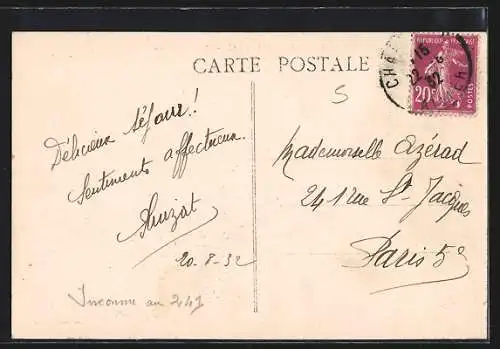 CARTE POSTALE
RÉPUBLIQUE FRANÇAISE
20c
POSTES
15
22-8
32
S
Délicieux séjour!
Sentiments affectueux
20-8-32
Inconnu au 241
Mademoiselle Azérad
241 rue St Jacques
Paris 5e